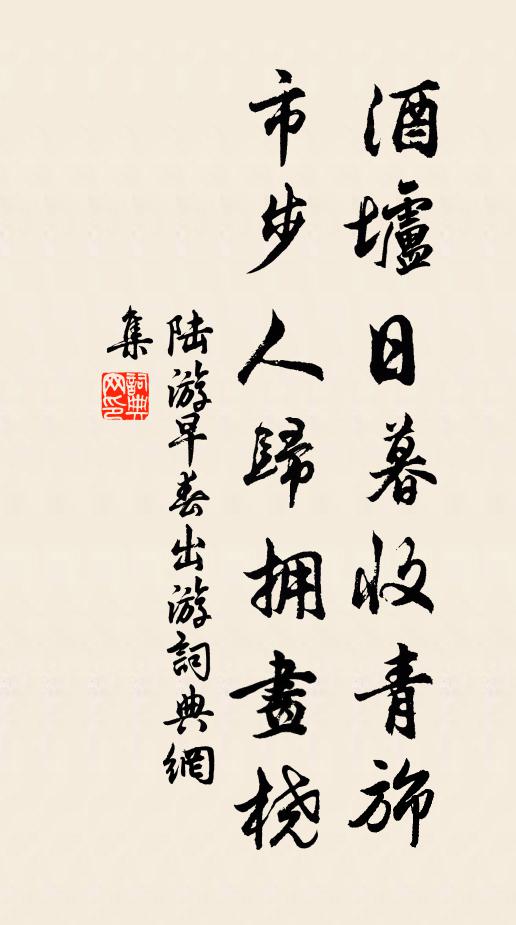 酒壚日暮收青旆
市步人歸擁畫橈
陸游早春出游詞典網
集
詞典网印